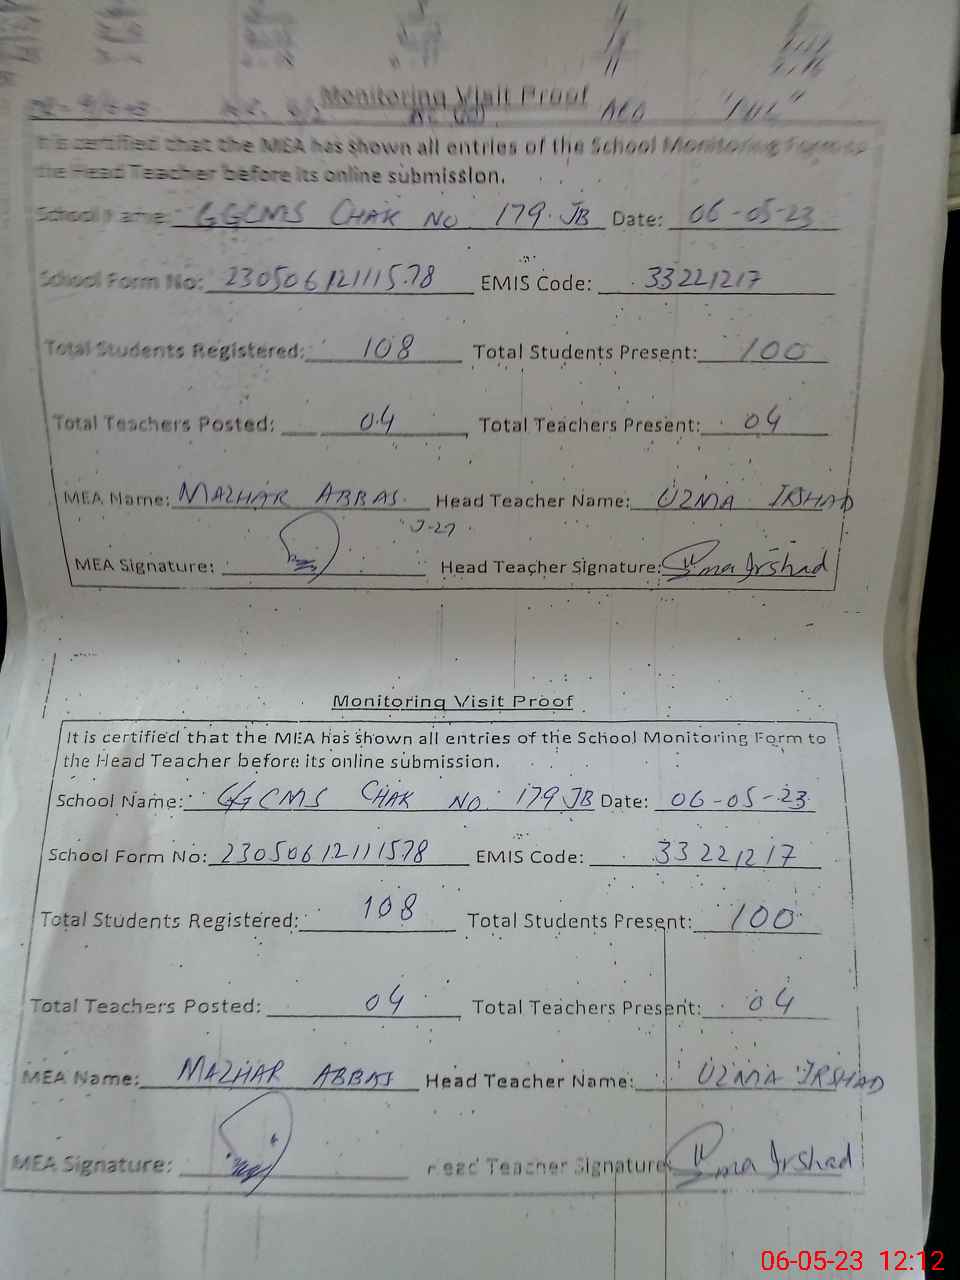 Monitoring Visit Proof
It is certified that the MEA has shown all entries of the School Monitoring Form to
the Head Teacher before its online submission.
School Name: GGCMS CHAK NO. 179. JB Date: 06-05-23
School Form No: 23050612111578 EMIS Code: 33221217
Total Students Registered: 108 Total Students Present: 100
Total Teachers Posted: 04 Total Teachers Present: 04
MEA Name: MAZHAR ABBAS. Head Teacher Name: UZMA IRSHAD
J-27
MEA Signature: Head Teacher Signature: Uzma Irshad
Monitoring Visit Proof
It is certified that the MEA has shown all entries of the School Monitoring Form to
the Head Teacher before its online submission.
School Name: GGCMS CHAK NO. 179 JB Date: 06-05-23
School Form No: 23050612111578 EMIS Code: 33221217
Total Students Registered: 108 Total Students Present: 100
Total Teachers Posted: 04 Total Teachers Present: 04
MEA Name: MAZHAR ABBAS Head Teacher Name: UZMA IRSHAD
MEA Signature: Head Teacher Signature: Uzma Irshad
06-05-23 12:12